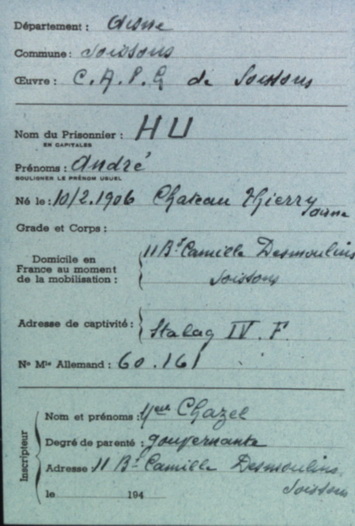 Département : Aisne
Commune : Soissons
Œuvre : C.A.P.G de Soissons
Nom du Prisonnier : HU
EN CAPITALES
Prénoms : André
SOULIGNER LE PRÉNOM USUEL
Né le : 10/2.1906 Chateau Thierry Aisne
Grade et Corps :
Domicile en France au moment de la mobilisation : 11 Bd Camille Desmoulins
Soissons
Adresse de captivité : Stalag IV. F.
N° Mle Allemand : 60.161
Inscripteur
Nom et prénoms : Mme Chazel
Degré de parenté : gouvernante
Adresse 11 Bd Camille Desmoulins
Soissons
le 194